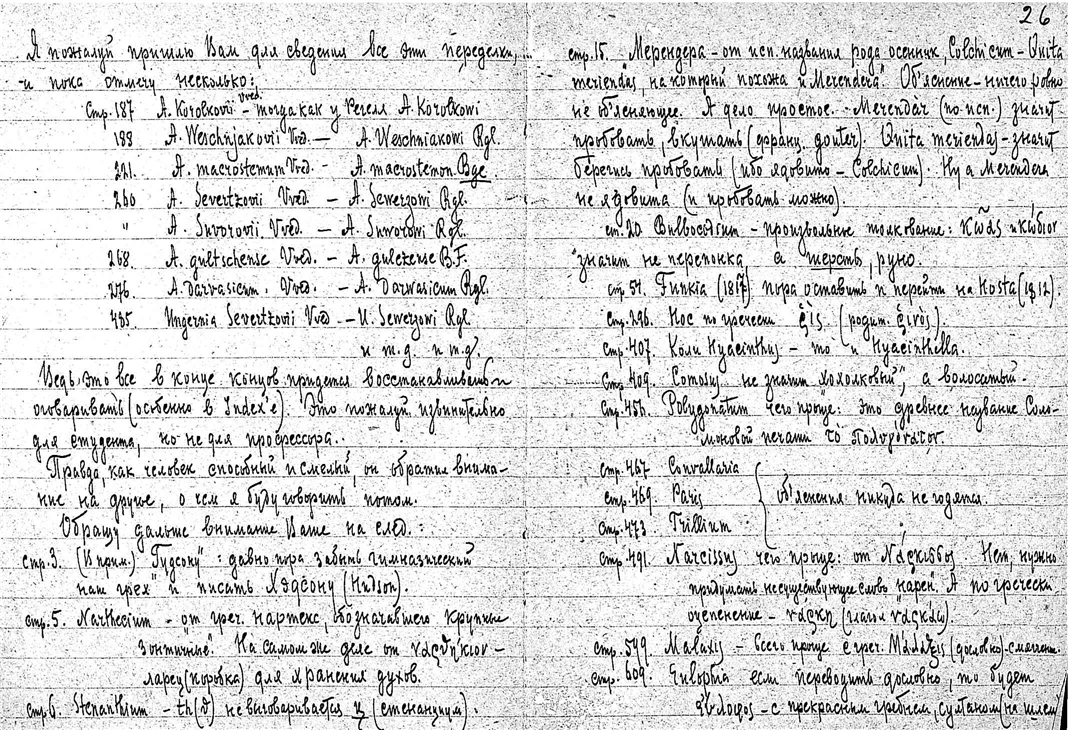 26
Я пожалуй пришлю Вам для сведения все эти переделки,...
а пока отмечу несколько:
Стр. 187 A. Korolkovi Vved. – тогда как у Регеля A. Korolkowi
199 A. Weschnjakovii Vved. — A. Weschniakowi Rgl.
221. A. macrostemum Vved. – A. macrostemon Bge
260 A. Severtzovii Vved. — A. Sewerzowi Rgl.
" A. Suvorovii Vved. — A. Suworowi Rgl.
268. A. gultschense Vved. – A. gulczense B.F.
276. A. darvasicum. Vved. – A. Darwasicum Rgl.
485 Ungernia Severtzovii Vved – U. Sewerzowi Rgl.
и т.д. и т.д.
Ведь это все в конце концов придется восстанавливать и
оговаривать (особенно в Index'е). Это пожалуй извинительно
для студента, но не для профессора..
Правда, как человек способный и смелый, он обратил внима-
ние на другое, о чем я буду говорить потом.
Обращу дальше внимание Ваше на след.:
стр. 3. (В прим.) "Гудсону": давно пора забыть гимназический
наш "грех" и писать Хэдсону (Hudson).
стр. 5. Narthecium – от греч. нартекс, обозначавшего крупные
"зонтичные". На самом же деле от ναρθήκιον –
ларец (коробка) для хранения духов.
стр 6. Stenanthium – th (θ) не выговаривается ц (стенанциум).
стр. 15. Мерендера – от исп. названия рода осенник, Colchicum – Quita
meriendas, на который похожа и Merendera". Об'яснение – ничего ровно
не об'ясняющее. А дело простое. – Merendar (по исп.) значит
пробовать, вкушать (франц. gouter). Quita meriendas – значит
берегись пробовать (ибо ядовито – Colchicum). Ну а Merendera
не ядовита (и пробовать можно).
ст. 20. Bulbocodium – произвольное толкование: κῶας и κώδιον
значит не перепонка а шерсть, руно.
стр 54. Funkia (1817) пора оставить и перейти на Hosta (1812).
Стр. 296. Нос по гречески ῥίς (родит. ῥινός).
стр. 407. Коли Hyacinthus – то и Hyacinthella.
стр 409. Comosus не значит "хохолковый", а волосатый.
стр. 456. Polygonatum чего проще: это древнее название Соло-
моновой печати τὸ πολυγόνατον.
стр. 467 Convallaria
стр. 469. Paris об'яснения никуда не годятся.
стр. 473 Trillium
стр. 491. Narcissus чего проще: от Νάρκισσος. Нет, нужно
придумать несуществующее слово "нарси". А по гречески
оцепенение – νάρκη (глагол ναρκάω).
стр. 549. Malaxis – всего проще с греч. Μάλαξις (дословно) – смягчение.
стр. 609. Eulophia если переводить дословно, то будет
εὔλοφος – с прекрасным гребнем, султаном (на шлеме